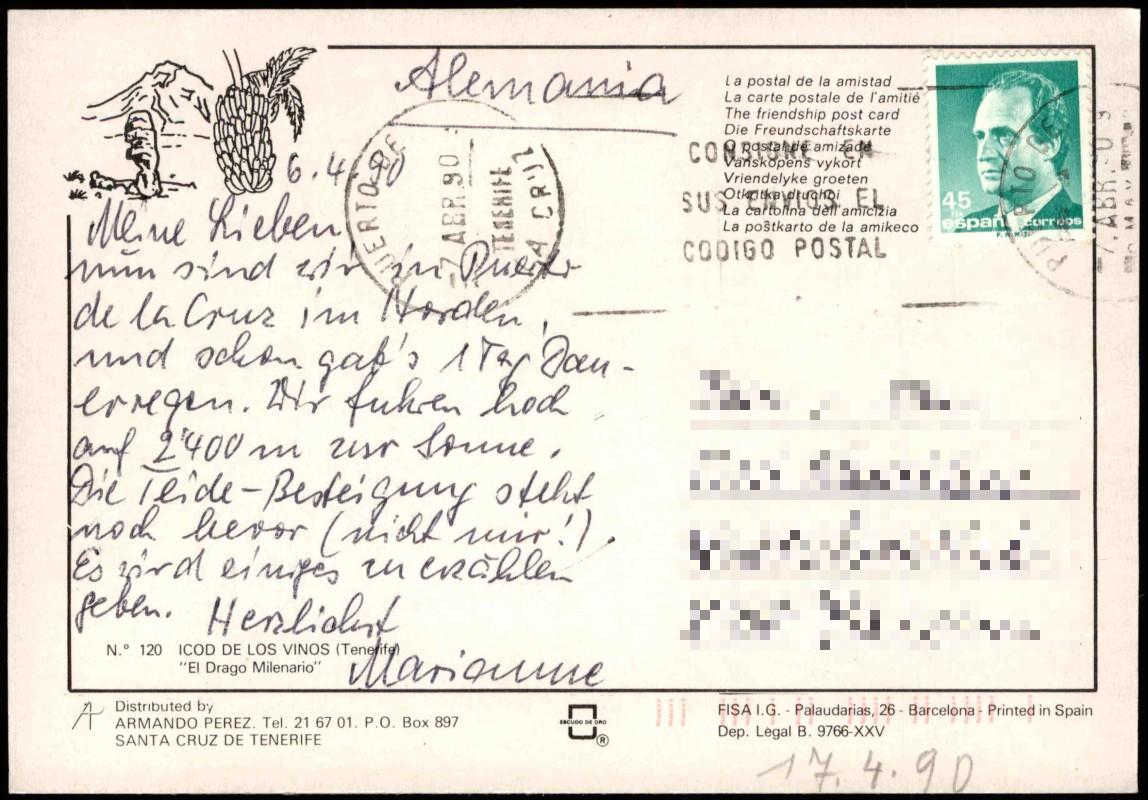 Alemania
La postal de la amistad
La carte postale de l'amitié
The friendship post card
Die Freundschaftskarte
O postal de amizade
Vänskopens vykort
Vriendelyke groeten
La cartolina dell'amicizia
La poŝtkarto de la amikeco
CONSIGNE EN
SUS ENVIOS EL
CODIGO POSTAL
45
PTA
españa correos
PUERTO DE LA CRUZ
-7.ABR.90
TENERIFE
PUERTO DE
-7.ABR.90
6.4.90
Meine Lieben,
nun sind wir in Puerto
de la Cruz im Norden,
und schon gab's 1 Tag Dau-
erregen. Wir fuhren hoch
auf 2'400 m zur Sonne.
Die Teide-Besteigung steht
noch bevor (nicht mir!).
Es wird einiges zu erzählen
geben. Herzlichst
Marianne
N.° 120 ICOD DE LOS VINOS (Tenerife)
"El Drago Milenario"
Distributed by
ARMANDO PEREZ. Tel. 21 67 01. P.O. Box 897
SANTA CRUZ DE TENERIFE
ESCUDO DE ORO
®
FISA I.G. - Palaudarias, 26 - Barcelona - Printed in Spain
Dep. Legal B. 9766-XXV
17.4.90